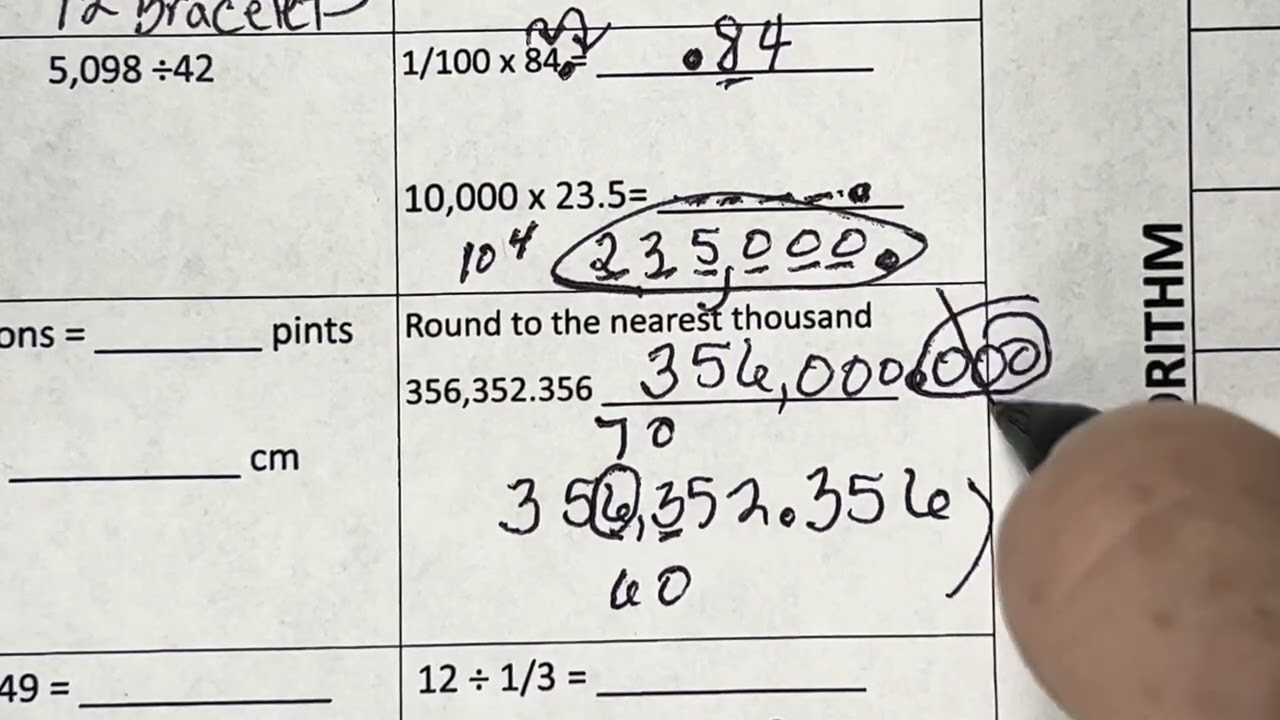 12 Bracelet
5,098 ÷42
1/100 x 84.= .84
10,000 x 23.5=
10 4 235,000.
ons = ________ pints
Round to the nearest thousand
356,352.356 356,000.000
70
356,352.356
________ cm
60
49 = ________
12 ÷ 1/3 = ________
RITHM